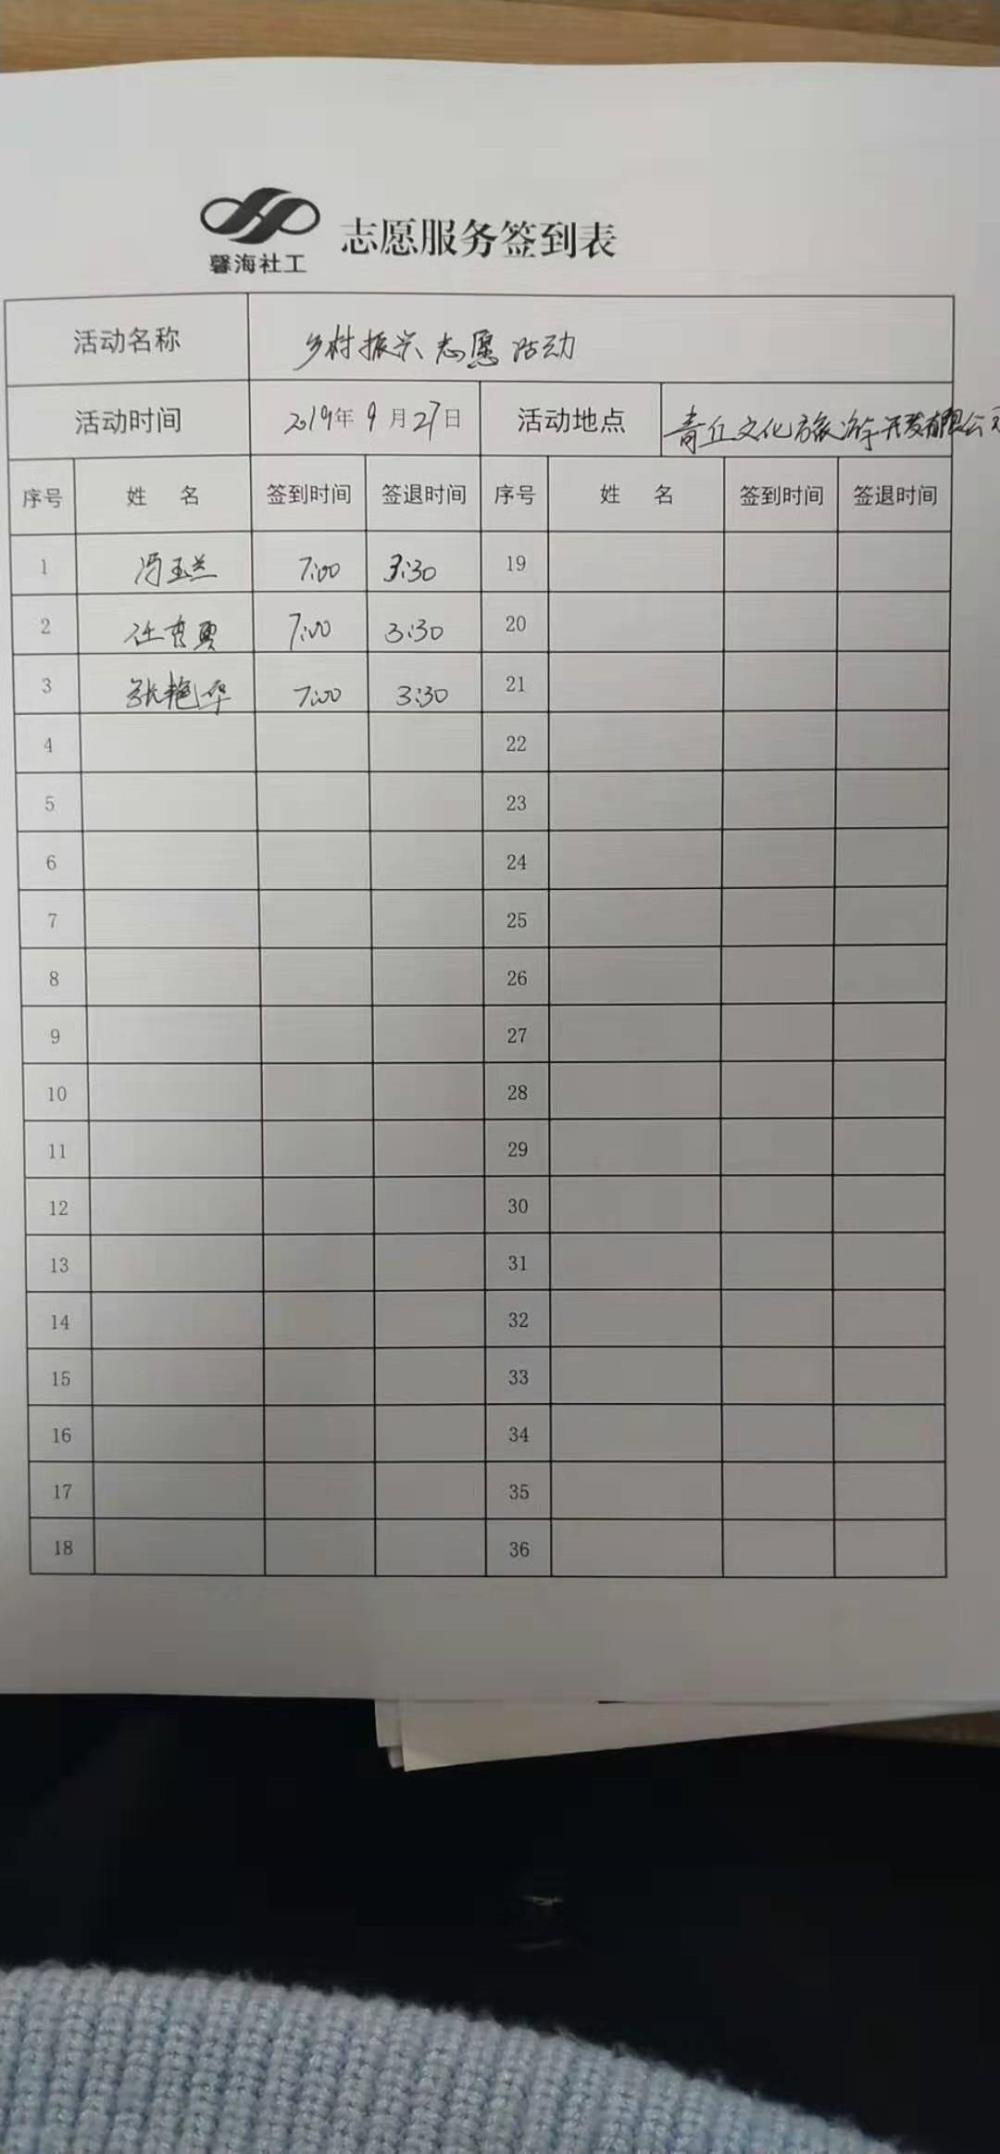 馨海社工
志愿服务签到表
活动名称 乡村振兴志愿活动
活动时间 2019年9月27日 活动地点 青丘文化旅游开发有限公司
序号 姓 名 签到时间 签退时间 序号 姓 名 签到时间 签退时间
1 冯玉兰 7:00 3:30 19
2 7:00 3:30 20
3 张艳华 7:00 3:30 21
4 22
5 23
6 24
7 25
8 26
9 27
10 28
11 29
12 30
13 31
14 32
15 33
16 34
17 35
18 36